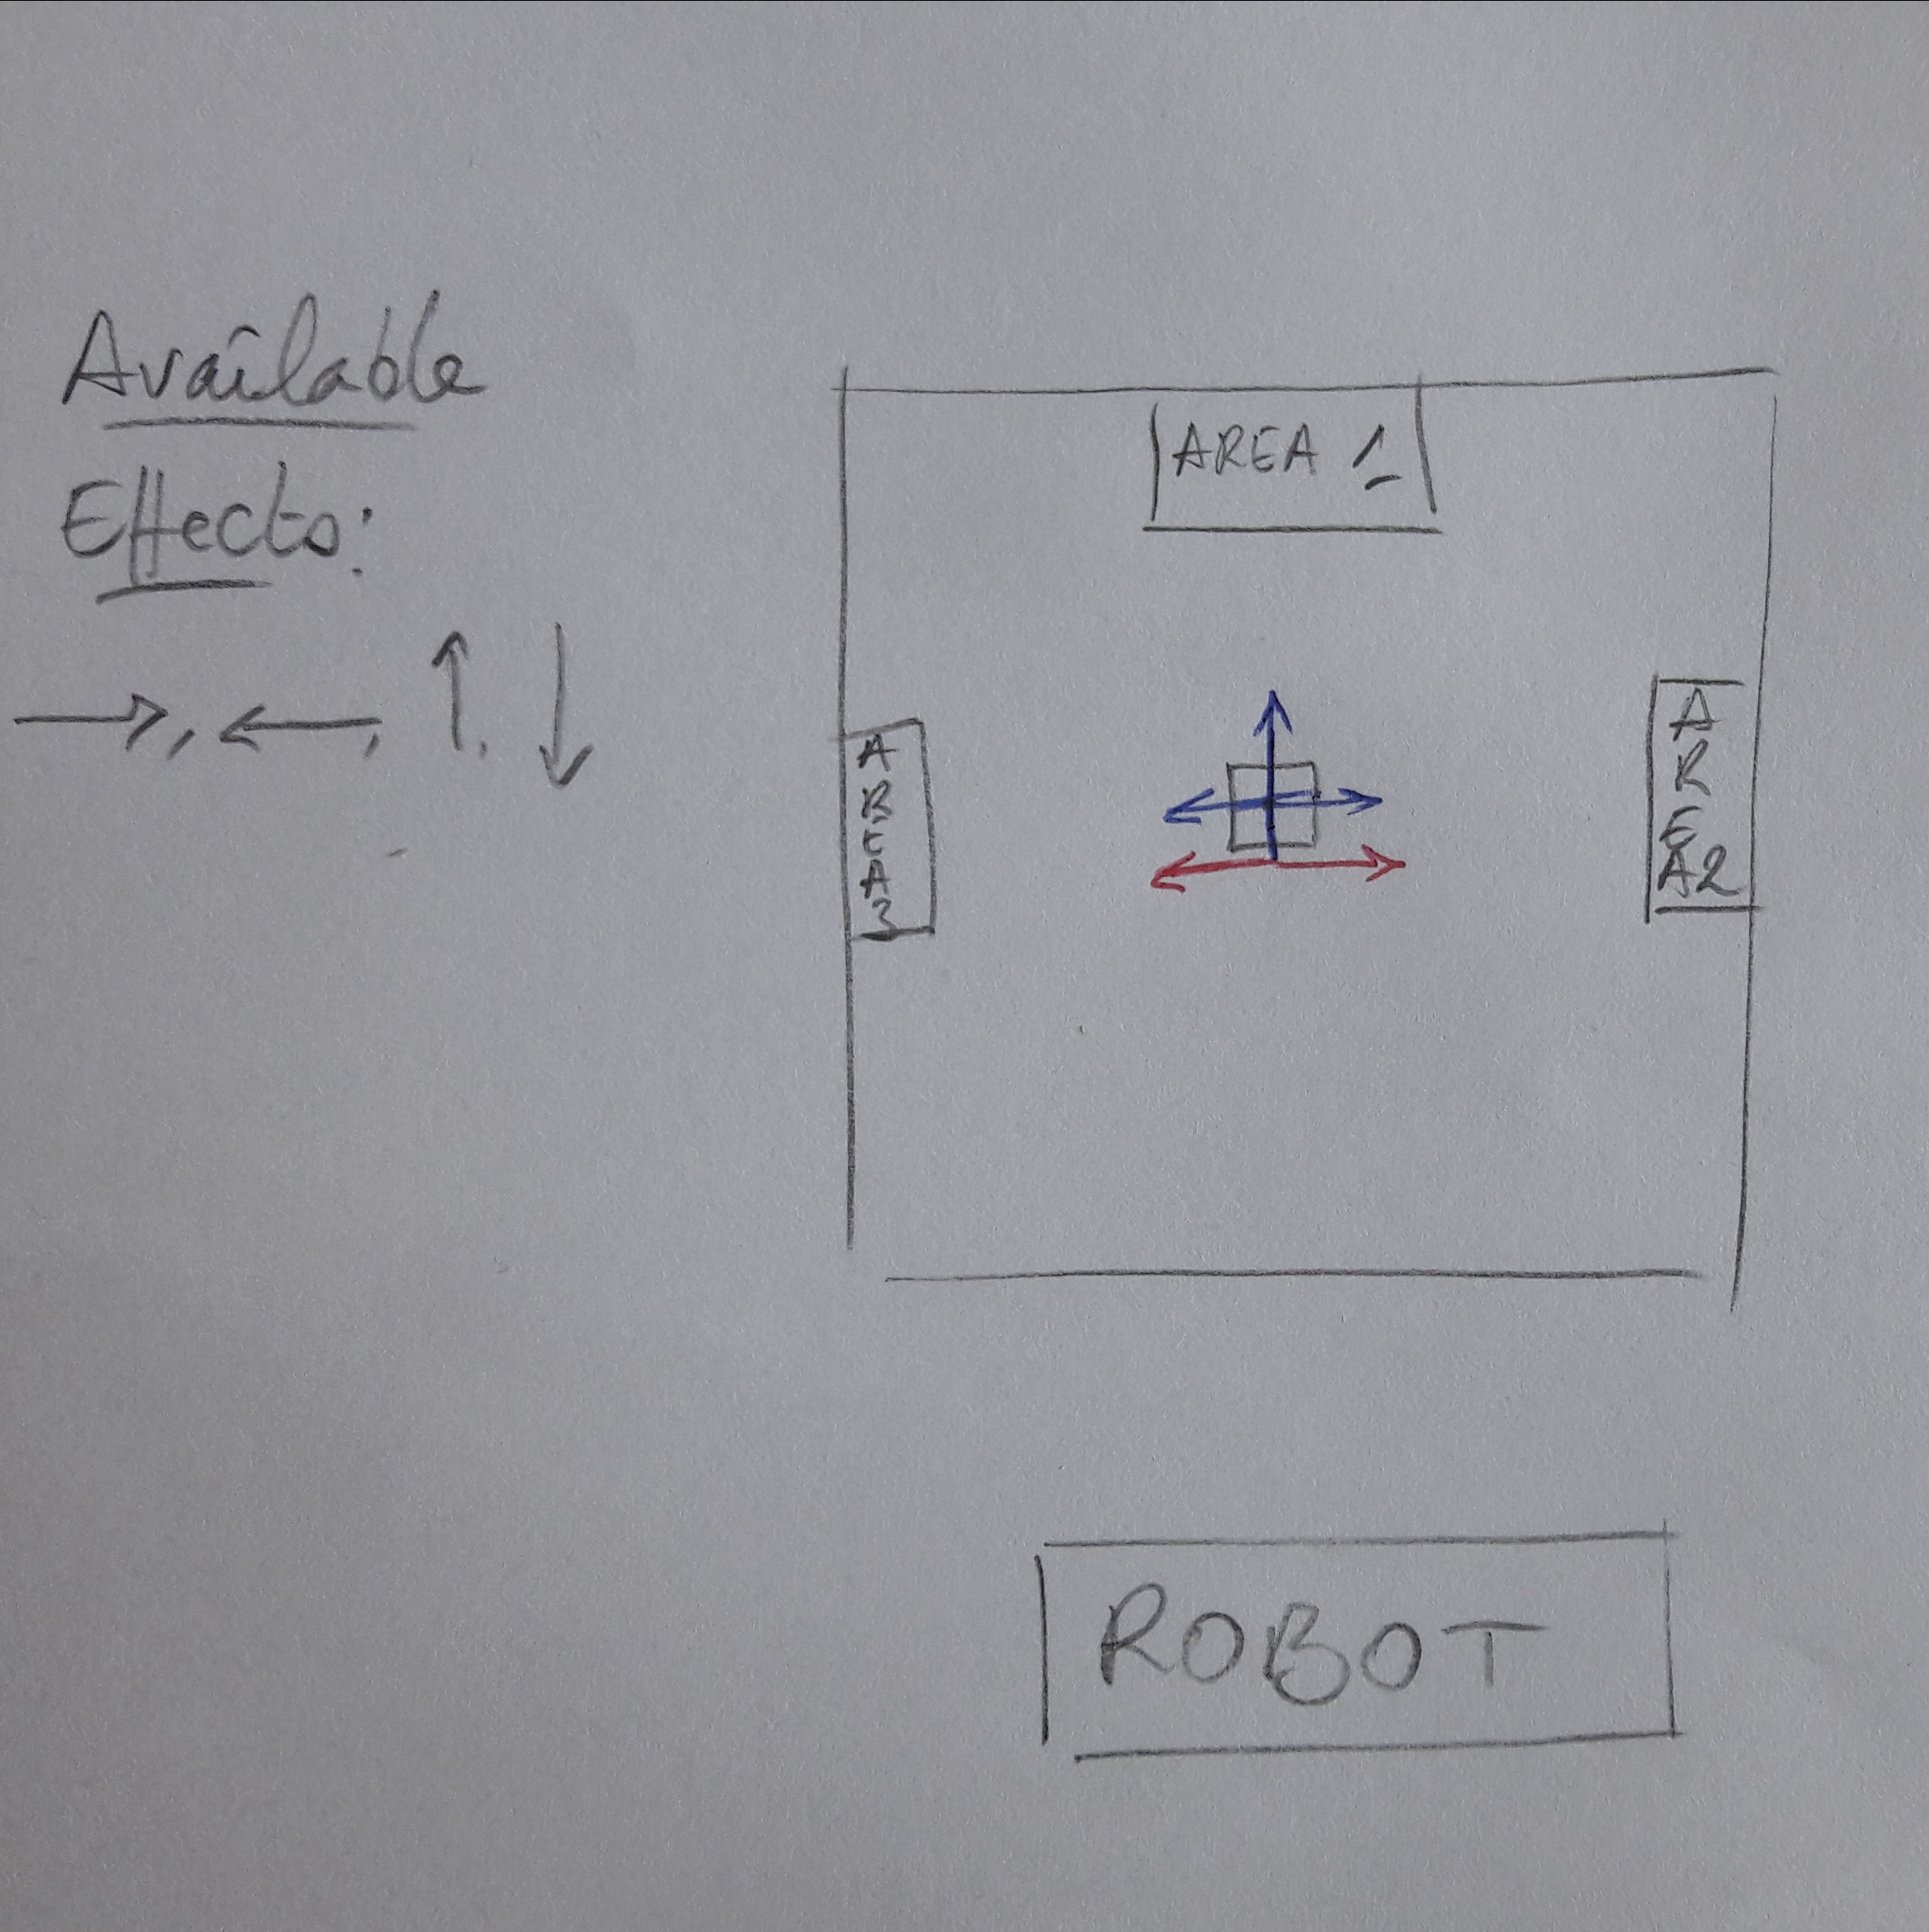 Available
Effects:
→, ←, ↑, ↓
AREA 1
AREA 3
AREA2
ROBOT